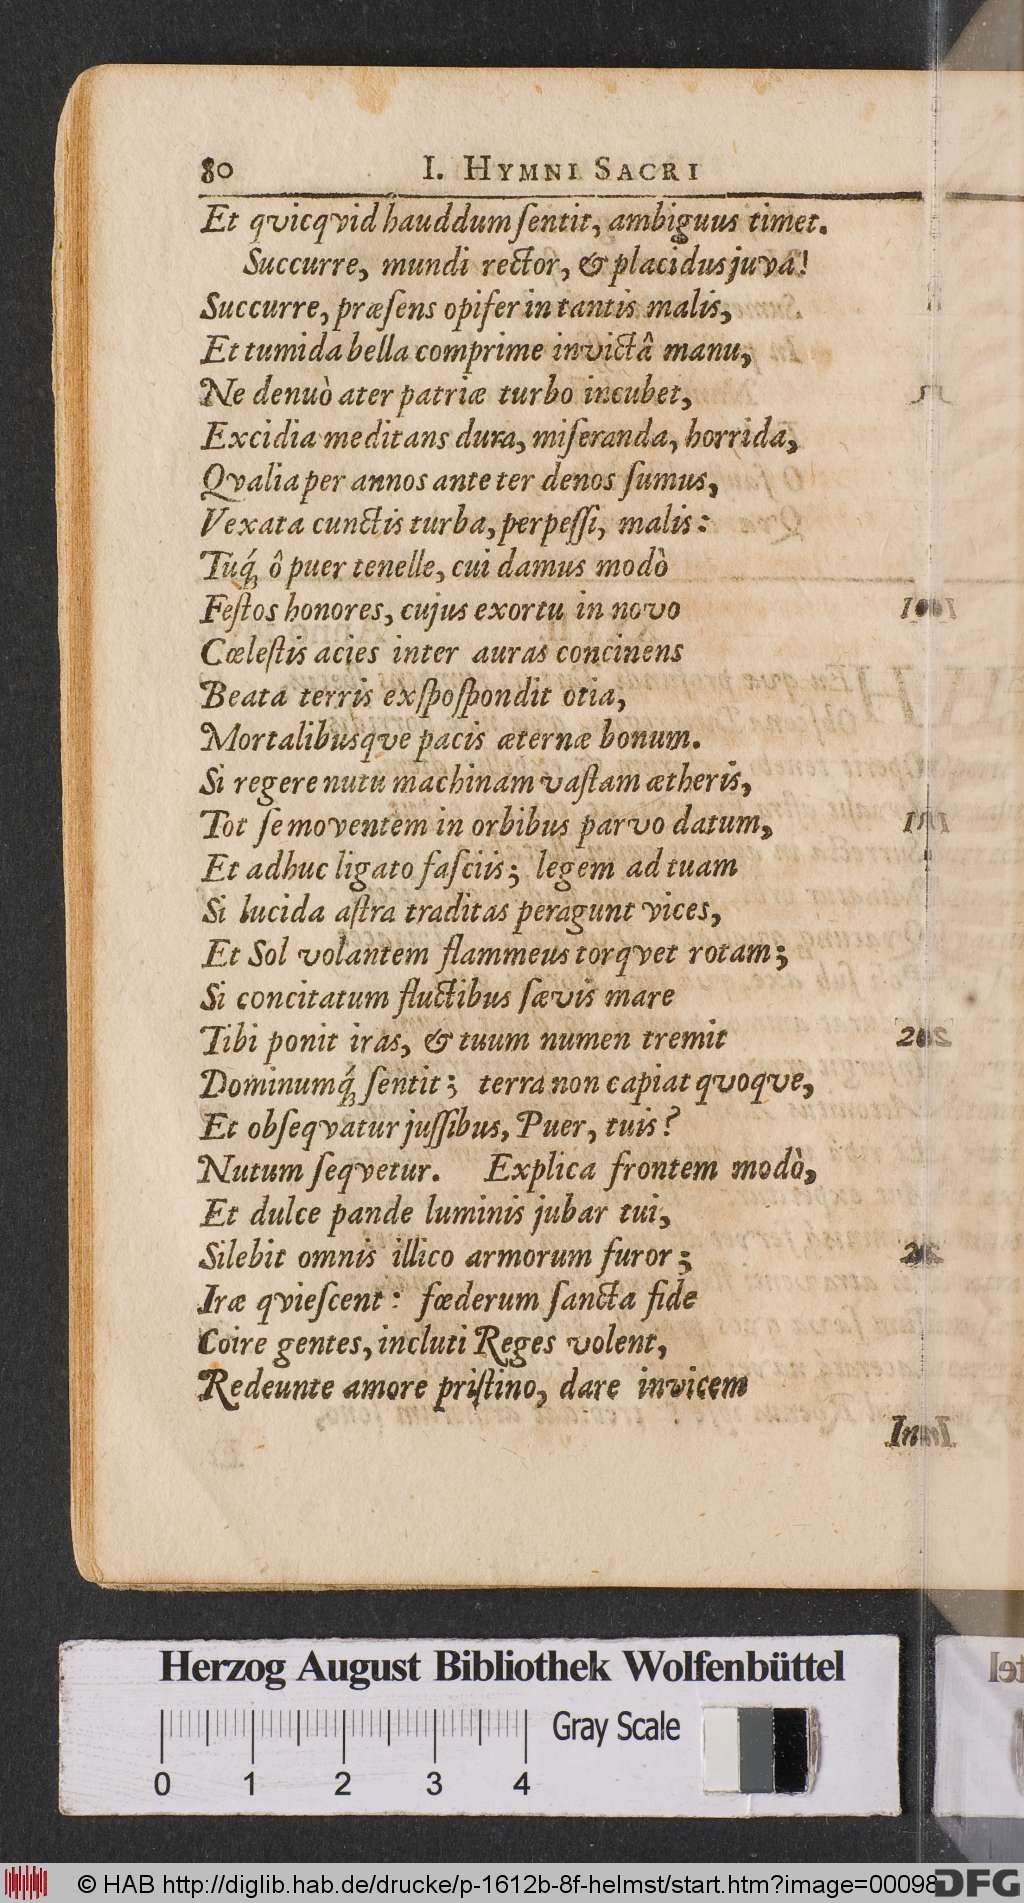 80 I. HYMNI SACRI
Et qvicqvid hauddum ſentit, ambiguus timet.
Succurre, mundi rector, & placidus juva!
Succurre, præſens opifer in tantis malis,
Et tumida bella comprime invictâ manu,
Ne denuò ater patriæ turbo incubet,
Excidia meditans dura, miſeranda, horrida,
Qvalia per annos ante ter denos ſumus,
Vexata cunctis turba, perpeſſi, malis:
Tuq́ꝫ ô puer tenelle, cui damus modò
Feſtos honores, cujus exortu in novo
Cœleſtis acies inter auras concinens
Beata terris exſpoſpondit otia,
Mortalibusqve pacis æternæ bonum.
Si regere nutu machinam vaſtam ætheris,
Tot ſe moventem in orbibus parvo datum,
Et adhuc ligato faſciis; legem ad tuam
Si lucida aſtra traditas peragunt vices,
Et Sol volantem flammeus torqvet rotam;
Si concitatum fluctibus ſævis mare
Tibi ponit iras, & tuum numen tremit
Dominumq́ꝫ ſentit; terra non capiat quoqve,
Et obſeqvatur juſſibus, Puer, tuis?
Nutum ſeqvetur. Explica frontem modò,
Et dulce pande luminis jubar tui,
Silebit omnis illico armorum furor;
Iræ qvieſcent: fœderum ſancta fide
Coire gentes, incluti Reges volent,
Redeunte amore priſtino, dare invicem
Herzog August Bibliothek Wolfenbüttel
Gray Scale
0 1 2 3 4
© HAB http://diglib.hab.de/drucke/p-1612b-8f-helmst/start.htm?image=00098
DFG